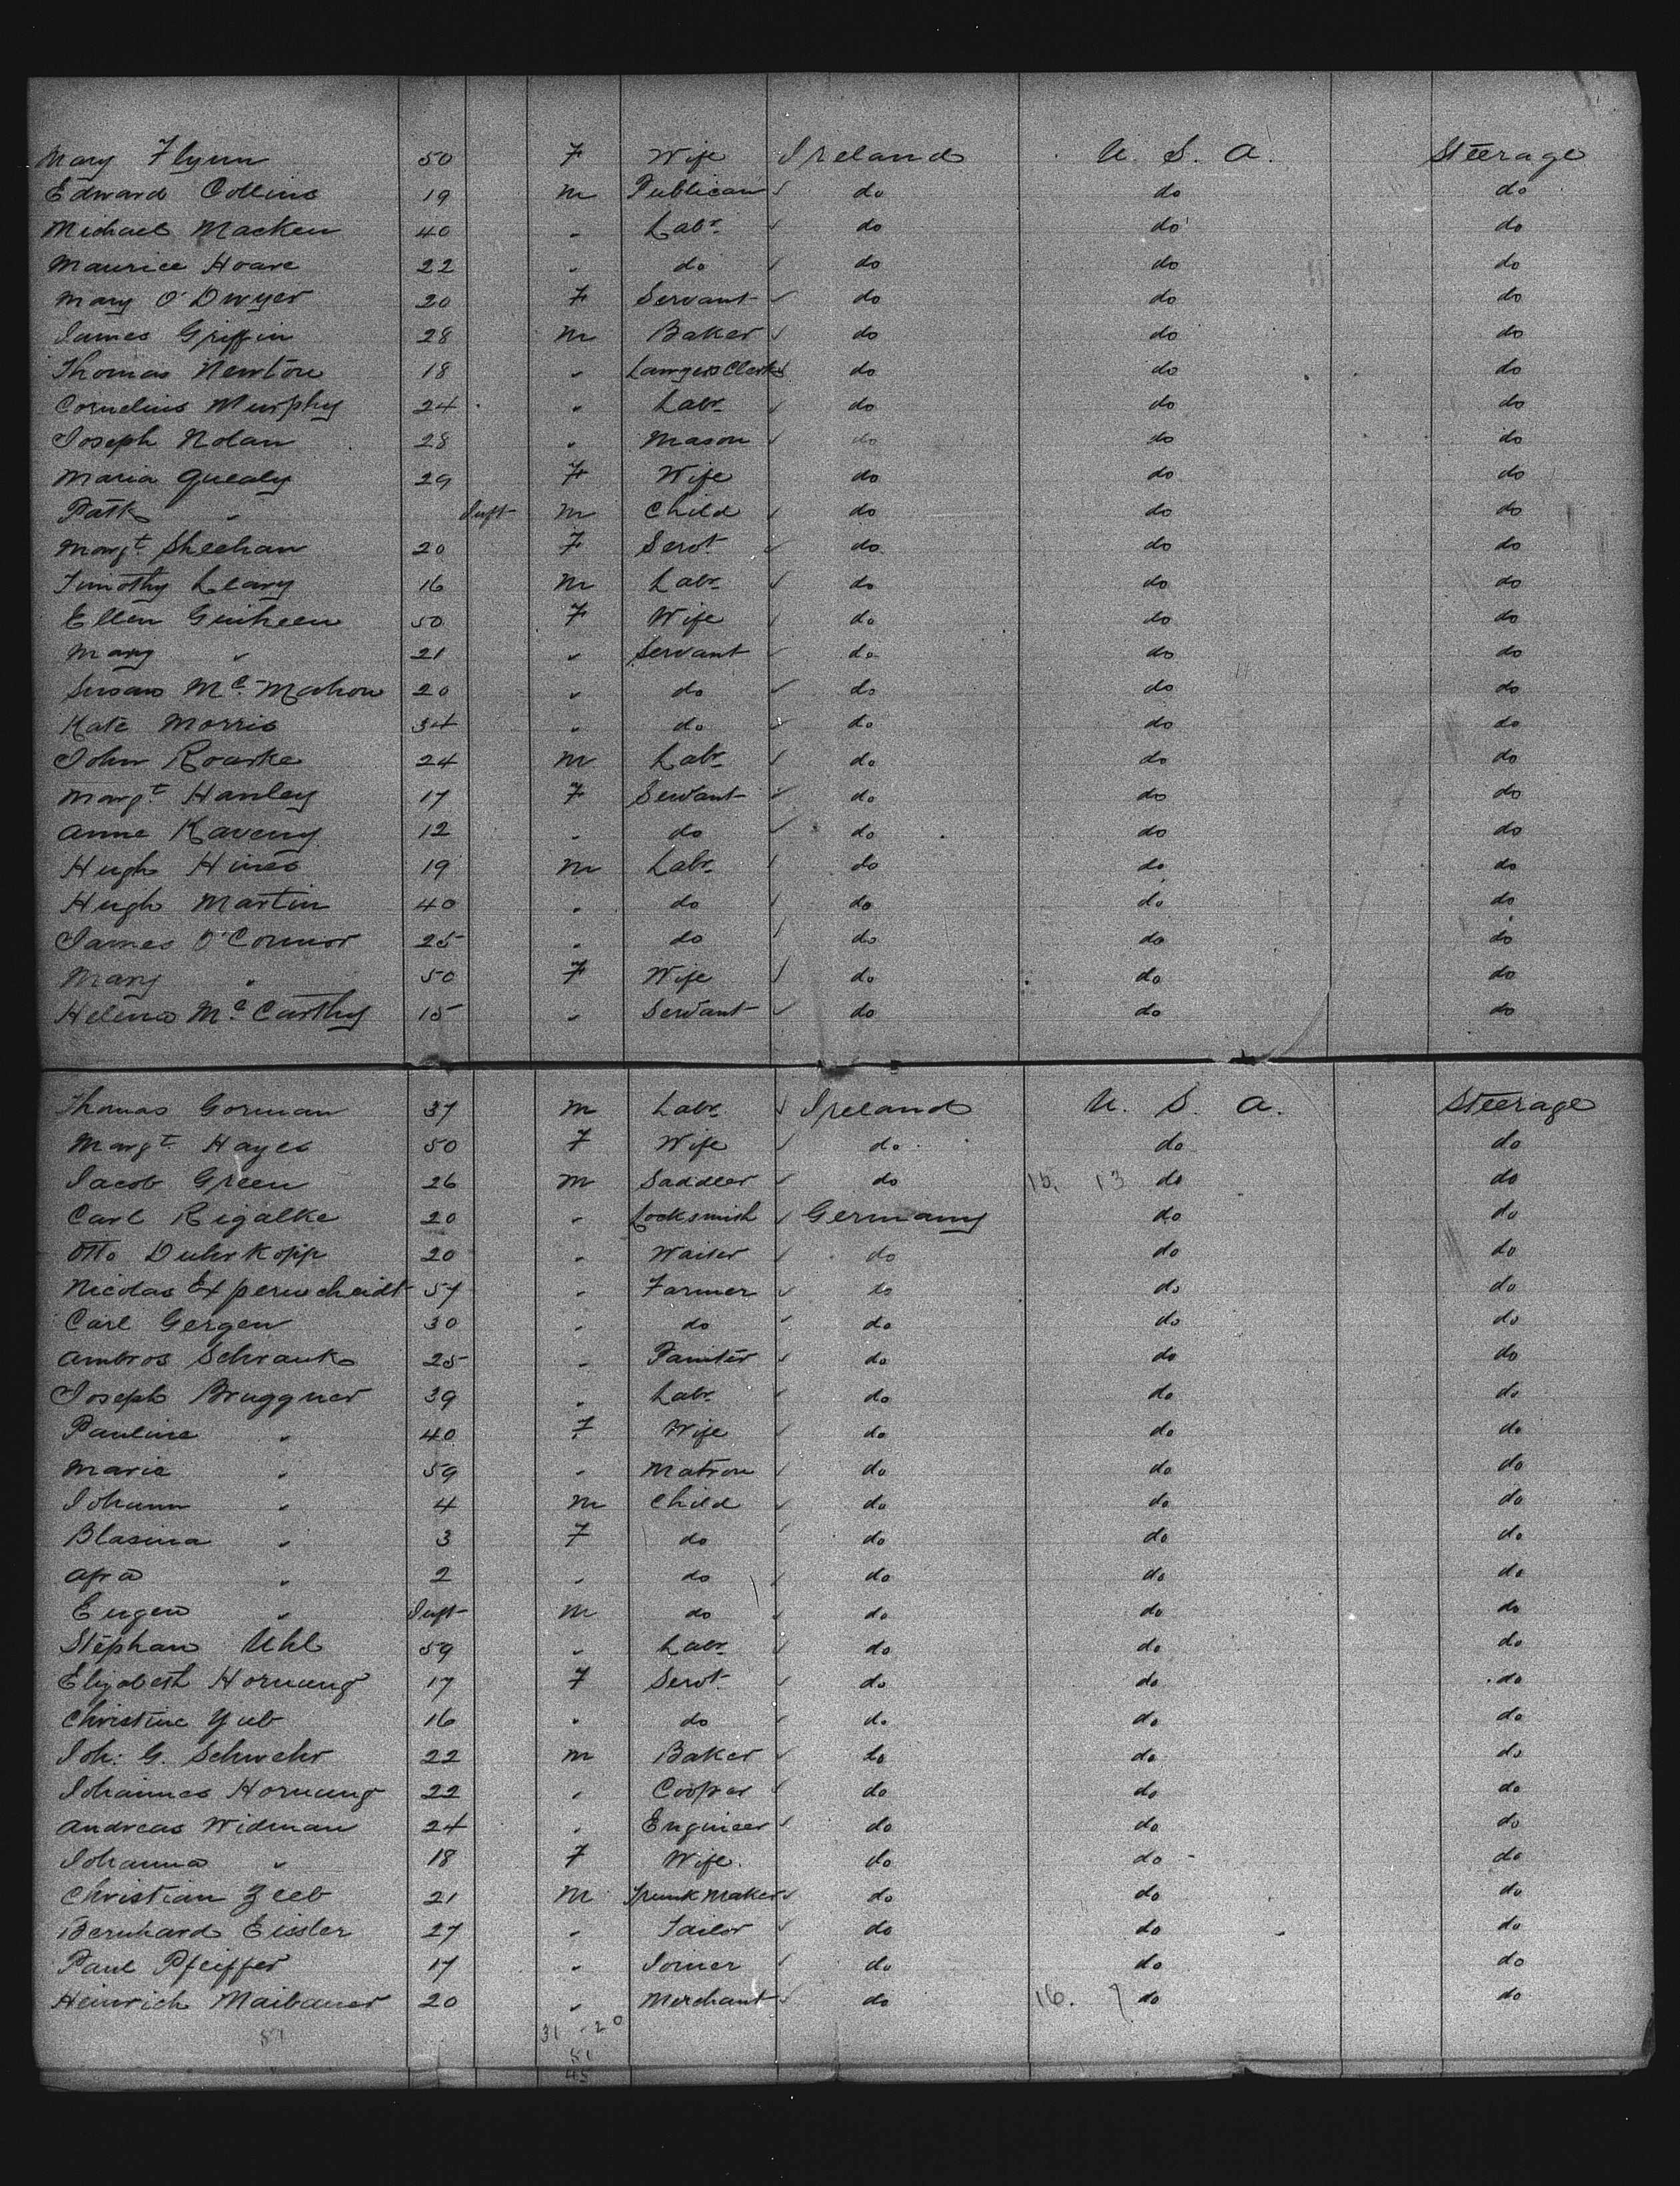 Mary Flynn 50 F Wife Ireland U. S. A. Steerage
Edward Collins 19 m Publican do do do
Michael Macken 40 " Labr do do do
Maurice Hoare 22 " do do do do
Mary O'Dwyer 20 F Servant do do do
James Griffin 28 m Baker do do do
Thomas Newton 18 " Lawyers Clerk do do do
Cornelius Murphy 24 " Labr do do do
Joseph Nolan 28 " Mason do do do
Maria Quealy 29 F Wife do do do
Patk " Inft m Child do do do
Margt Sheehan 20 F Servt do do do
Timothy Leary 16 m Labr do do do
Ellen Guiheen 50 F Wife do do do
Mary " 21 " Servant do do do
Susan Mc Mahon 20 " do do do do
Kate Morris 34 " do do do do
John Rourke 24 m Labr do do do
Margt Hanley 17 F Servant do do do
Anne Kaveny 12 " do do do do
Hugh Hines 19 m Labr do do do
Hugh Martin 40 " do do do do
James O'Connor 25 " do do do do
Mary " 50 F Wife do do do
Helena Mc Carthy 15 " Servant do do do
Thomas Gorman 37 m Labr Ireland U. S. A. Steerage
Margt Hayes 50 F Wife do do do
Jacob Green 26 m Saddler do 13 do do
Carl Rigalke 20 " Locksmith Germany do do
Otto Duhrkopp 20 " Waiter do do do
Nicolas 57 " Farmer do do do
Carl Gergen 30 " do do do do
Ambros Schrank 25 " Painter do do do
Joseph Bruggner 39 " Labr do do do
Pauline " 40 F Wife do do do
Marie " 59 " Matron do do do
Johann " 4 m Child do do do
Blasina " 3 F do do do do
Afra " 2 " do do do do
Eugen " Inft m do do do do
Stephan Uhl 59 " Labr do do do
Elizabeth Hornung 17 F Servt do do do
Christine Yub 16 " do do do do
Joh: G. Schwehr 22 m Baker do do do
Johannes Hornung 22 " Cooper do do do
Andreas Widman 24 " Engineer do do do
Johanna " 18 F Wife do do do
Christian Zeeb 21 m Trunk Maker do do do
Bernhard Eissler 27 " Tailor do do do
Paul Pfeiffer 17 " Joiner do do do
Heinrich Maibauer 20 " Merchant do 16. 7 do do
31 - 20
51
45